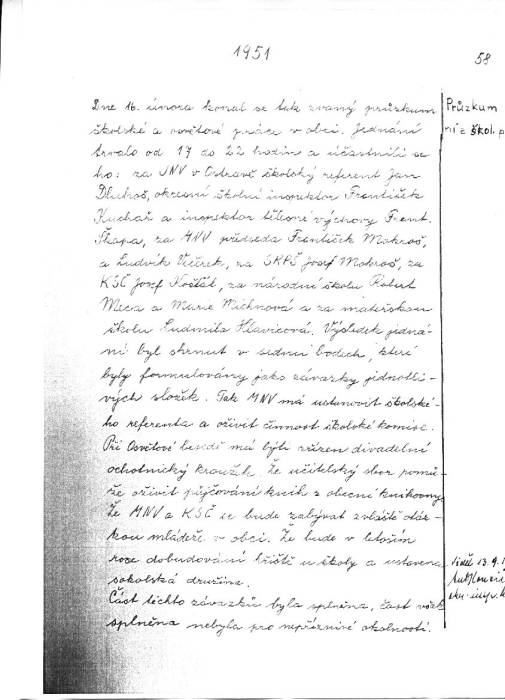 1951
58
Dne 16. února konal se tak zvaný průzkum
školské a osvětové práce v obci. Jednání
trvalo od 17 do 22 hodin a účastnili se
ho: za JNV v Ostravě školský referent Jan
Dluhoš, okresní školní inspektor František
Kuchař a inspektor tělesné výchovy Frant.
Škapa, za MNV předseda František Mokroš,
a Ludvík Vičírek, za SRPŠ Josef Mokroš, za
KSČ Josef Košťál, za národní školu Robert
Meca a Marie Michnová a za mateřskou
školu Ludmila Hlavicová. Výsledek jedná-
ní byl shrnut v sedmi bodech, které
byly formulovány jako závazky jednotli-
vých složek. Tak MNV má ustanovit školské-
ho referenta a oživit činnost školské komise.
Při Osvětové besedě má býti zřízen divadelní
ochotnický kroužek. Že učitelský sbor pomů-
že oživit půjčování knih z obecní knihovny.
Že MNV a KSČ se bude zabývat zvláště otáz-
kou mládeže v obci. Že bude v letošním
roce dobudováno hřiště u školy a ustavena
sokolská družina.
Část těchto závazků byla splněna, část však
splněna nebyla pro nepříznivé okolnosti.
Průzkum
ní z škol. p
Viděl 13.9.